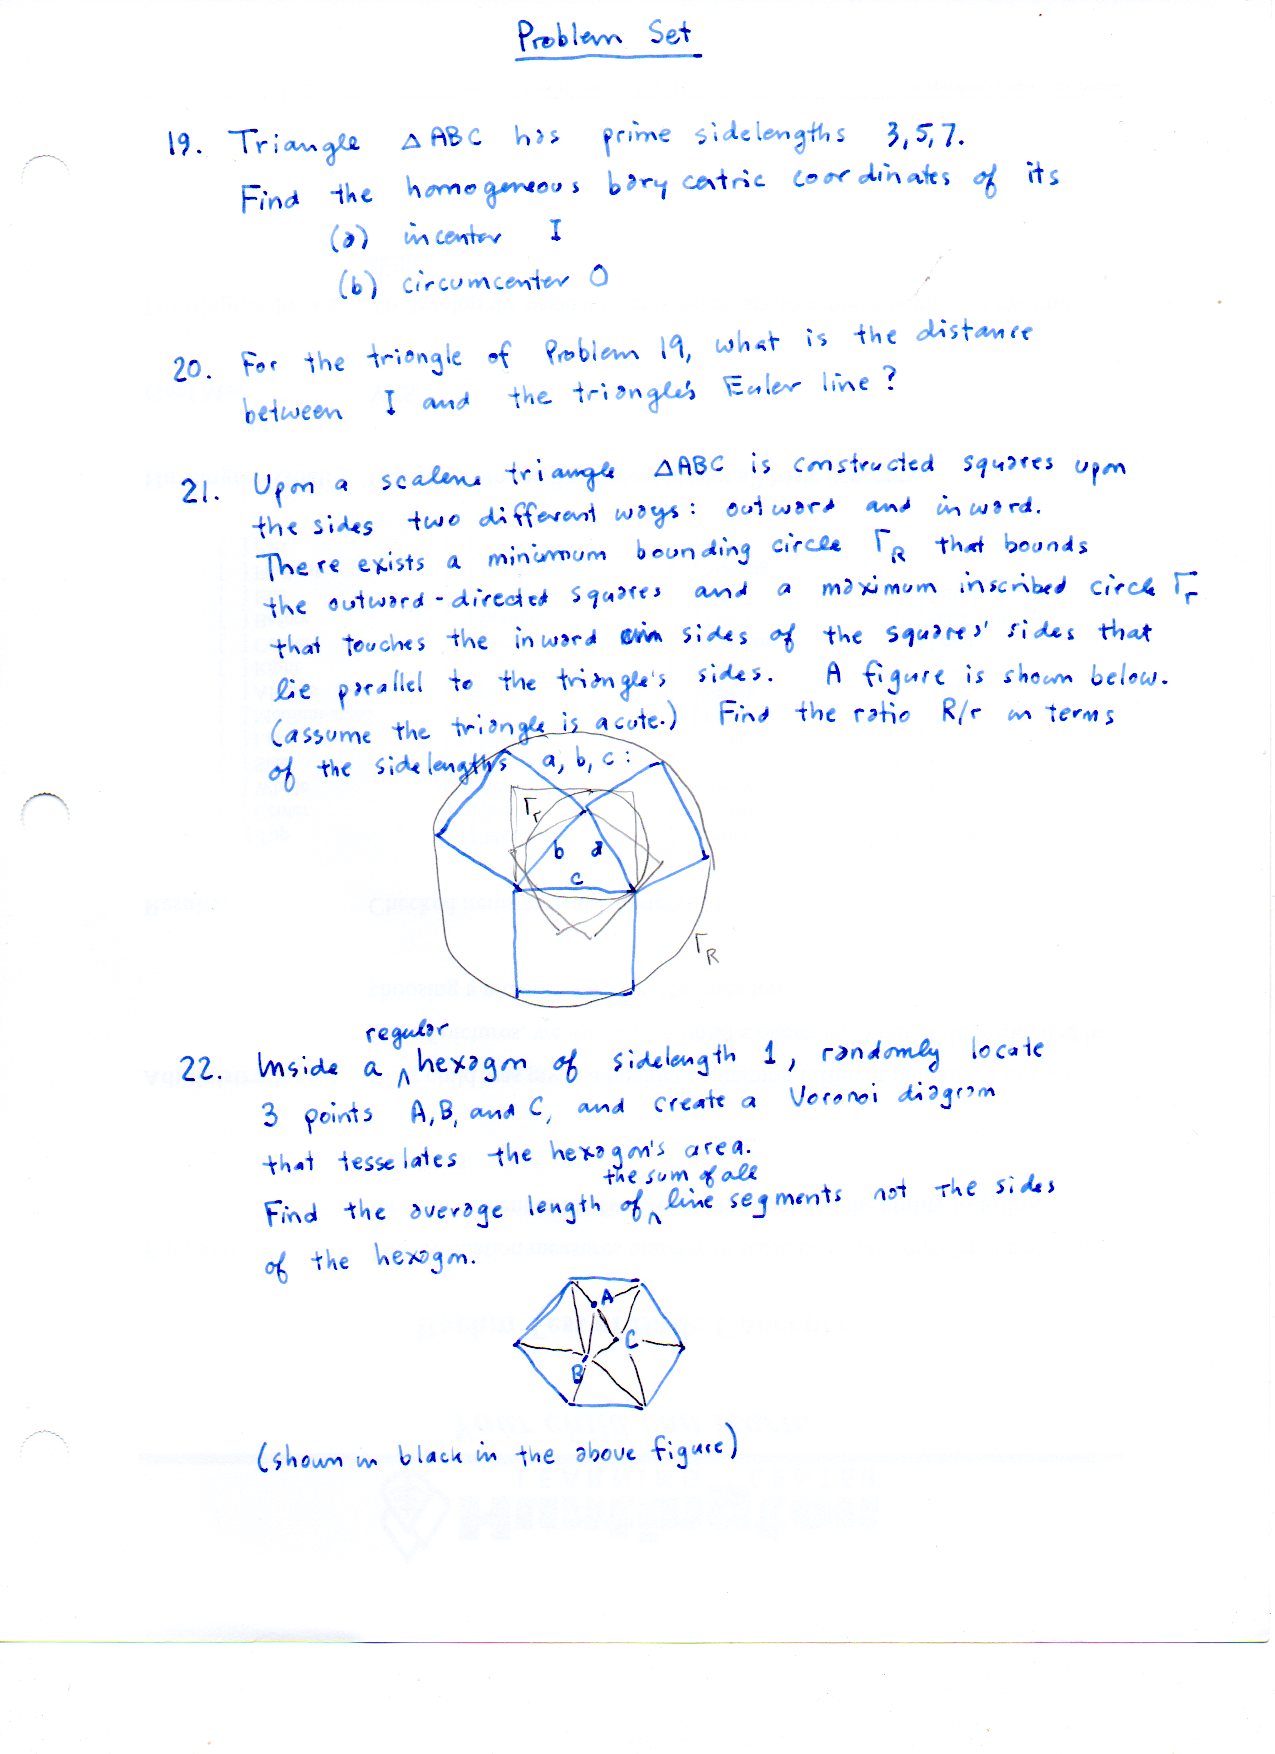 Problem Set
19. Triangle △ABC has prime sidelengths 3,5,7.
Find the homogeneous barycentric coordinates of its
(a) incenter I
(b) circumcenter O
20. For the triangle of Problem 19, what is the distance
between I and the triangle's Euler line?
21. Upon a scalene triangle △ABC is constructed squares upon
the sides two different ways: outward and inward.
There exists a minimum bounding circle Γ_R that bounds
the outward-directed squares and a maximum inscribed circle Γ_r
that touches the inward sides of the squares' sides that
lie parallel to the triangle's sides. A figure is shown below.
(assume the triangle is acute.) Find the ratio R/r in terms
of the sidelengths a, b, c:
Γ_r
b a
c
Γ_R
regular
22. Inside a ^ hexagon of sidelength 1, randomly locate
3 points A, B, and C, and create a Voronoi diagram
that tesselates the hexagon's area.
the sum of all
Find the average length of ^ line segments not the sides
of the hexagon.
A
C
B
(shown in black in the above figure)